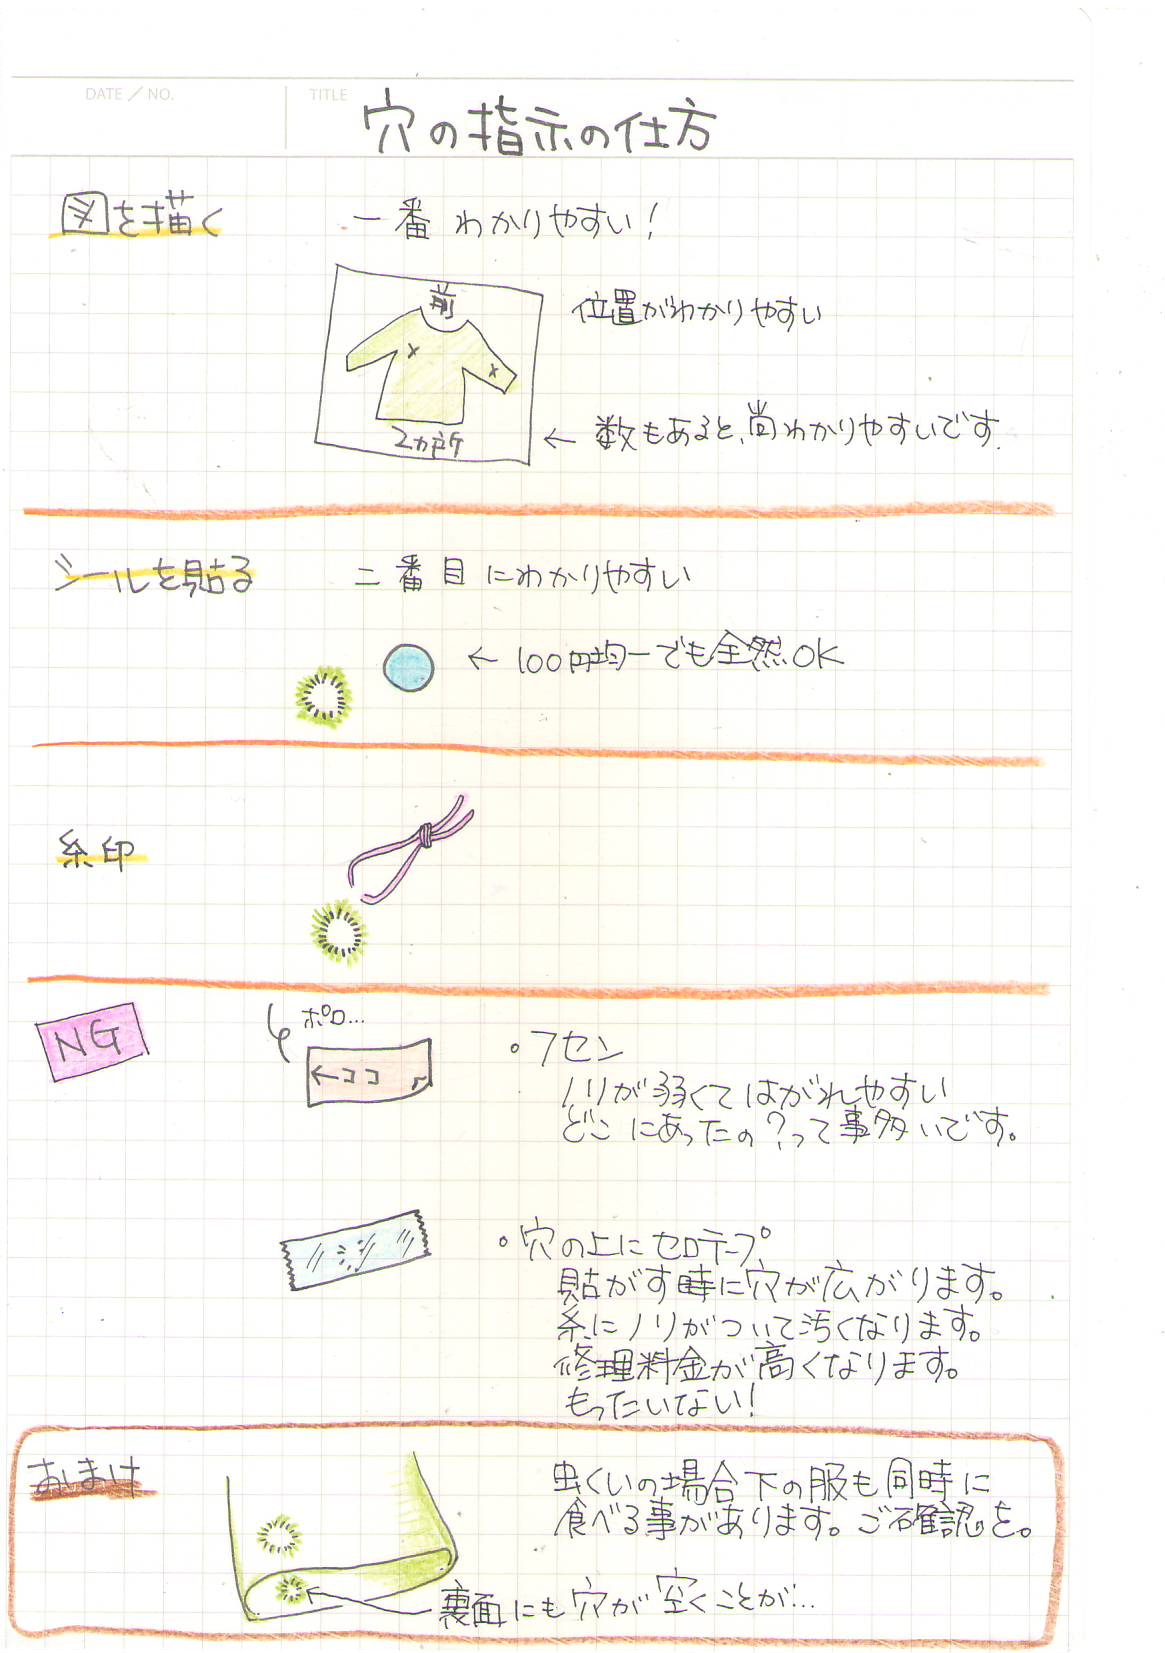 DATE／NO.
TITLE
穴の指示の仕方
図を描く
一番わかりやすい！
前
位置がわかりやすい
2カ所
← 数もあると、尚わかりやすいです.
シールを貼る
二番目にわかりやすい
← 100円均一でも全然OK
糸印
NG
ポロ…
←ココ
・フセン
ノリが弱くてはがれやすい
どこにあったの？って事多いです。
・穴の上にセロテープ
貼がす時に穴が広がります。
糸にノリがついて汚くなります。
修理料金が高くなります。
もったいない！
おまけ
虫くいの場合下の服も同時に
食べる事があります。ご確認を。
裏面にも穴が空くことが…